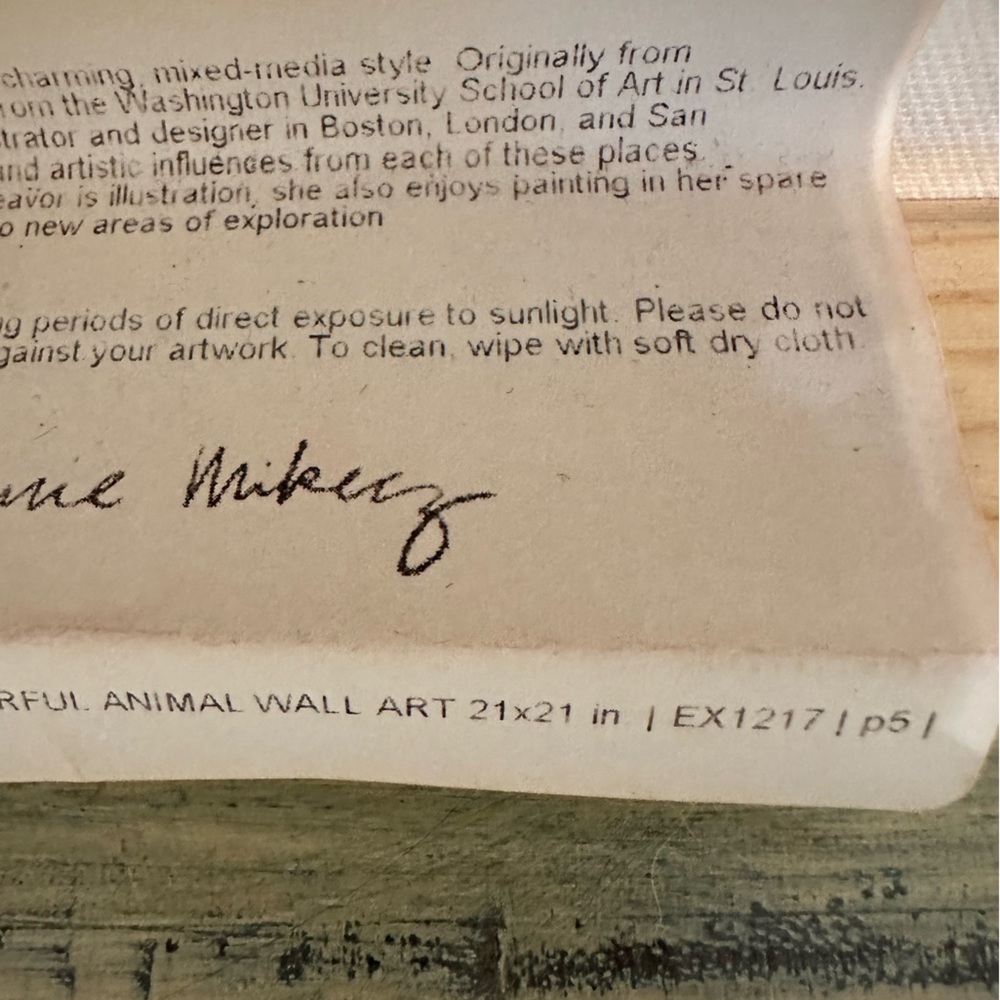 charming, mixed-media style Originally from
rom the Washington University School of Art in St. Louis.
trator and designer in Boston, London, and San
nd artistic influences from each of these places.
eavor is illustration, she also enjoys painting in her spare
o new areas of exploration
g periods of direct exposure to sunlight. Please do not
gainst your artwork. To clean, wipe with soft dry cloth.
RFUL ANIMAL WALL ART 21x21 in | EX1217 | p5 |